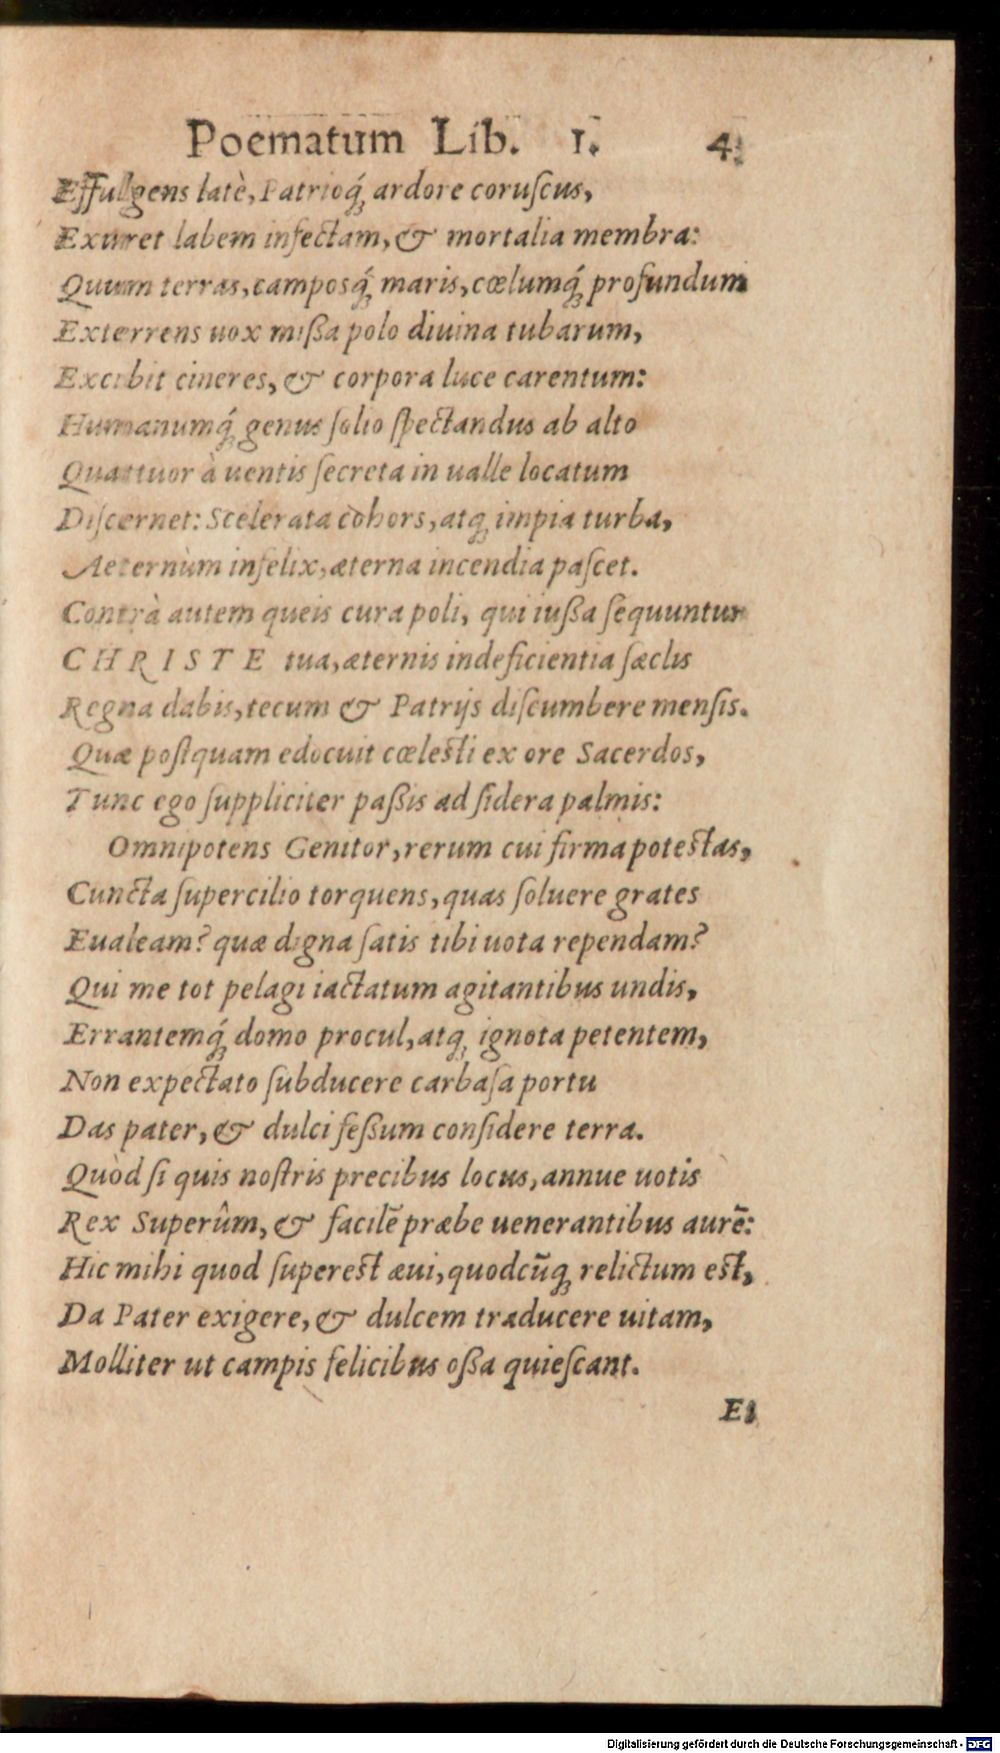 Poematum Lib. 1. 4
Effulgens latè, Patrioq́ꝫ ardore coruſcus,
Exuret labem infectam, & mortalia membra:
Quum terras, camposq́ꝫ maris, cœlumq́ꝫ profundum
Exterrens uox mißa polo diuina tubarum,
Excibit cineres, & corpora luce carentum:
Humanumq́ꝫ genus ſolio ſpectandus ab alto
Quattuor à uentis ſecreta in ualle locatum
Diſcernet: Scelerata cohors, atqꝫ impia turba,
Aeternùm infelix, æterna incendia paſcet.
Contrà autem queis cura poli, qui iußa ſequuntur
CHRISTE tua, æternis indeficientia ſæclis
Regna dabis, tecum & Patrijs diſcumbere menſis.
Quæ poſtquam edocuit cœleſti ex ore Sacerdos,
Tunc ego ſuppliciter paßis ad ſidera palmis:
Omnipotens Genitor, rerum cui firma poteſtas,
Cuncta ſupercilio torquens, quas ſoluere grates
Eualeam? quæ digna ſatis tibi uota rependam?
Qui me tot pelagi iactatum agitantibus undis,
Errantemq́ꝫ domo procul, atqꝫ ignota petentem,
Non expectato ſubducere carbaſa portu
Das pater, & dulci feßum conſidere terra.
Quòd ſi quis noſtris precibus locus, annue uotis
Rex Superûm, & facilē præbe uenerantibus aurē:
Hic mihi quod ſupereſt æui, quodcūqꝫ relictum eſt,
Da Pater exigere, & dulcem traducere uitam,
Molliter ut campis felicibus oßa quieſcant.
Ei
Digitalisierung gefördert durch die Deutsche Forschungsgemeinschaft - DFG